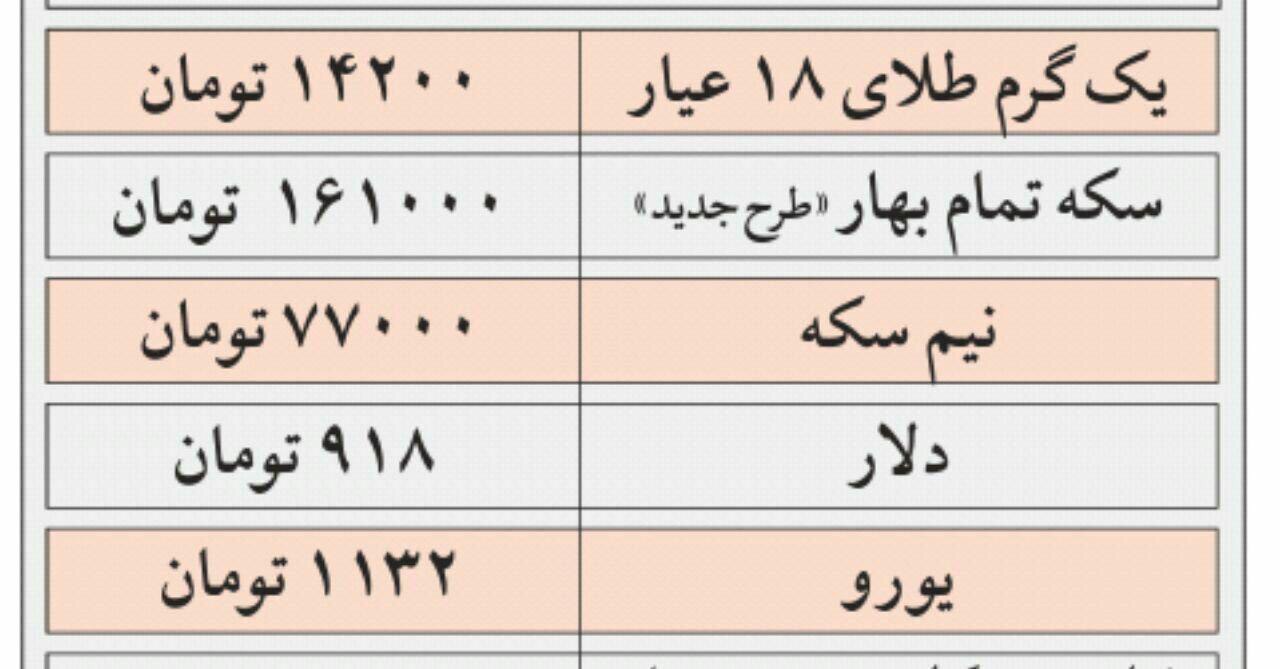 یک گرم طلای ۱۸ عیار ۱۴۲۰۰ تومان
سکه تمام بهار «طرح جدید» ۱۶۱۰۰۰ تومان
نیم سکه ۷۷۰۰۰ تومان
دلار ۹۱۸ تومان
یورو ۱۱۳۲ تومان